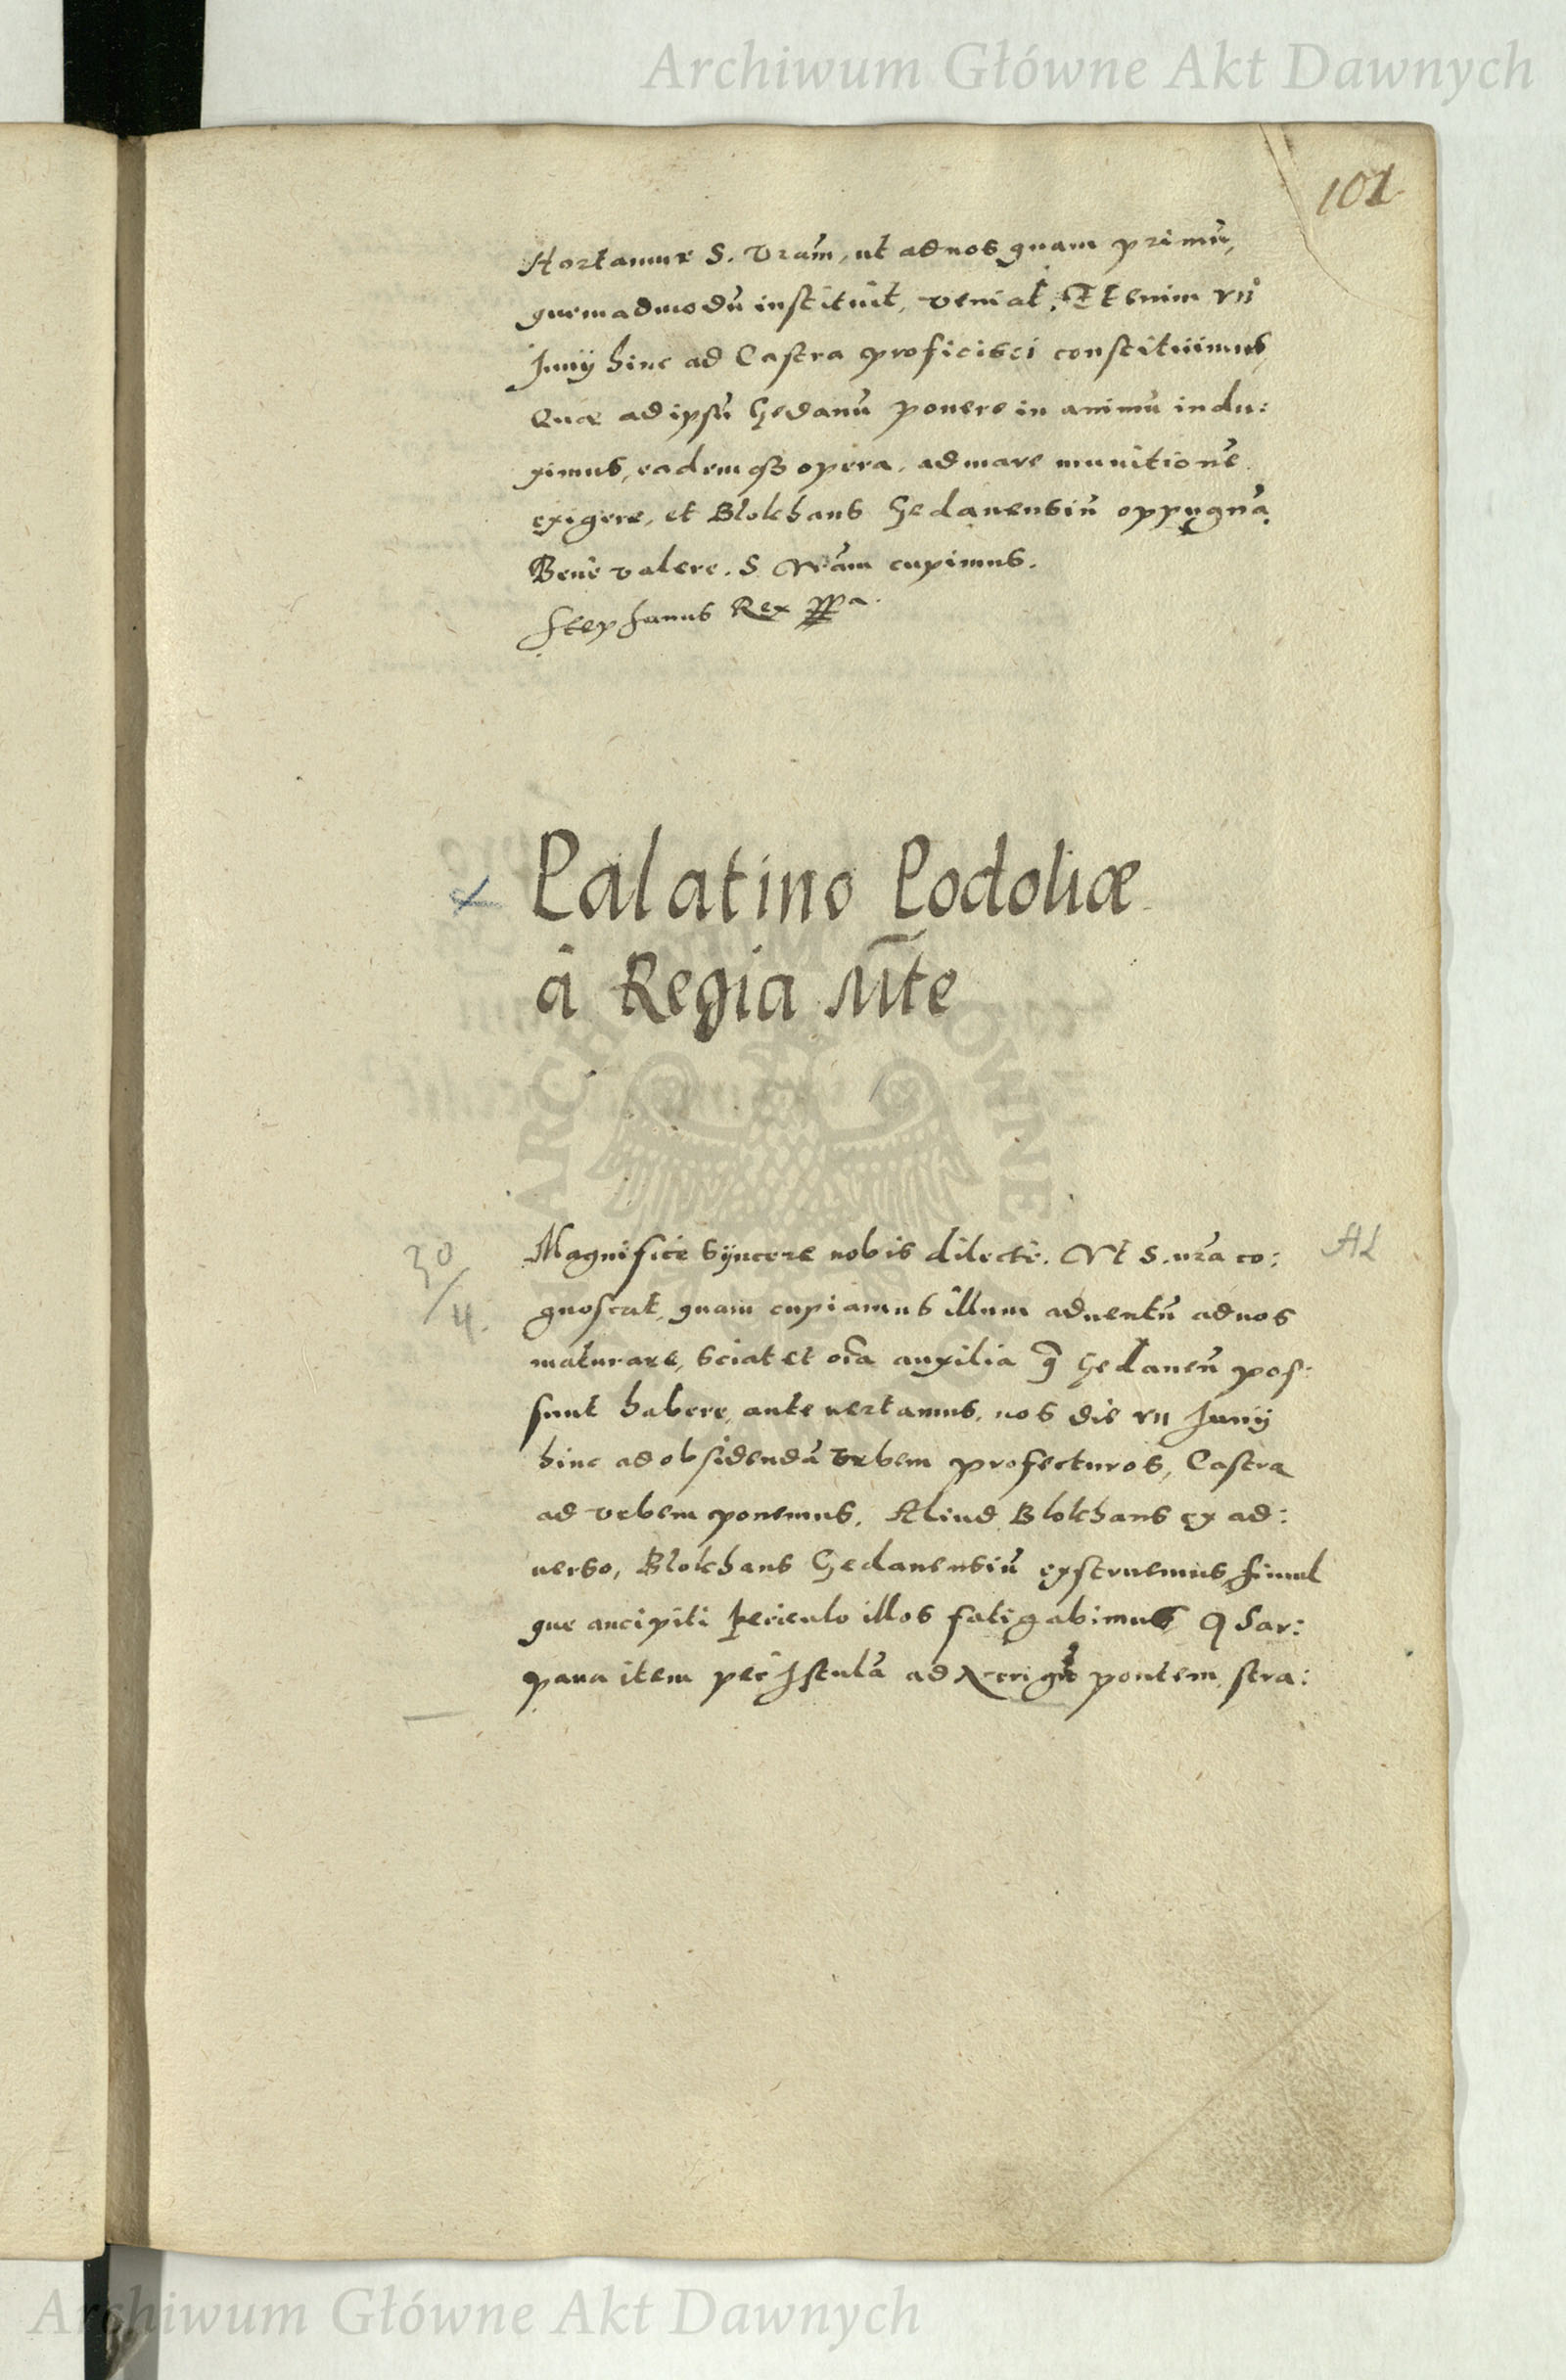 Archiwum Główne Akt Dawnych
101
Hortamur S. Vram, ut ad nos quam primū,
quemadmodū instituit, veniat. Etenim VII
Junij hinc ad Castra proficisci constituimus,
Quæ ad ipsū Gedanū ponere in animū indu:
ximus, eademq3 opera, ad mare munitionē
exigere, et Blokhaus Gedanensiū oppugnā.
Bene valere. S. Vram cupimus.
Stephanus Rex
Palatino Podoliæ
à Regia Mte
Magnifice syncere nobis dilecte. Vt S. vra co:
gnoscat, quam cupiamus illum aduentū ad nos
maturare, sciat et oīa auxilia q̄ Gedanen̄ pos:
sunt habere, ante vertamus, nos die VII Junij
hinc ad obsidendā Vrbem profecturos, Castra
ad vrbem ponemus. Aliud Blokhaus ex ad:
uerso, Blokhaus Gedanensiū exstruemus, simul
que ancipiti periculo illos fatigabimus
pana item per Istulā ad pontem stra:
30
/4.
AL
Archiwum Główne Akt Dawnych